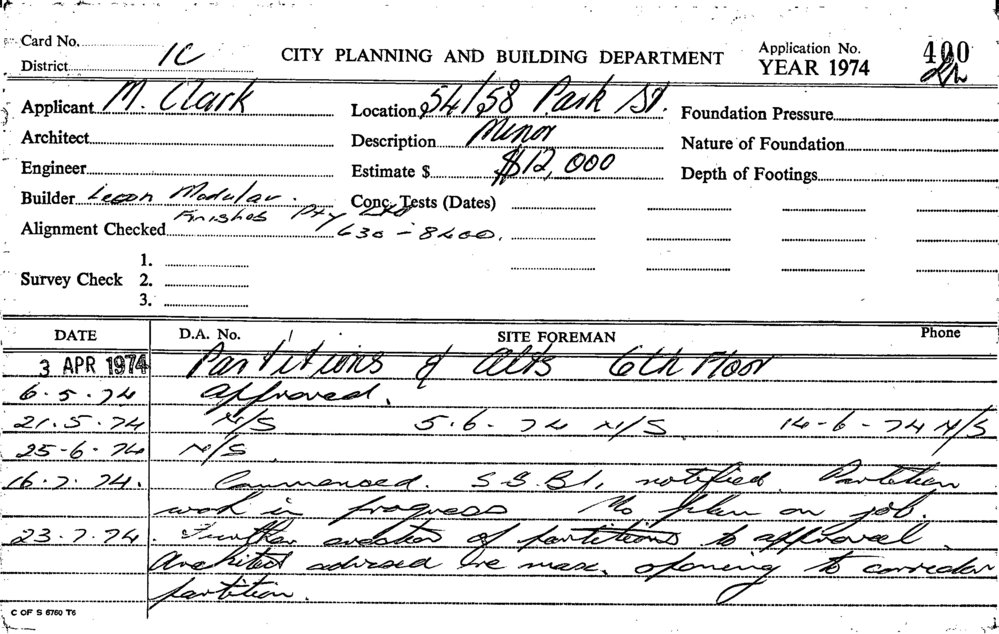 Card No.
District 1C
CITY PLANNING AND BUILDING DEPARTMENT
Application No. 400
YEAR 1974
Applicant M. Clark
Location 54/58 Park St.
Foundation Pressure
Architect
Description Minor
Nature of Foundation
Engineer
Estimate $ $12,000
Depth of Footings
Builder Modular
Finishes Pty Ltd
Conc. Tests (Dates)
Alignment Checked
Survey Check
1.
2.
3.
DATE D.A. No. SITE FOREMAN Phone
3 APR 1974 Partitions & Alts 6th Floor
6.5.74 approved.
21.5.74 N/S 5.6.74 N/S 14-6-74 N/S
25-6-74 N/S
16.7.74. Commenced. notified. Partition
work in progress No plan on job.
23.7.74. Further erection of partitions to approval.
Architect advised re max. opening to corridor
partition.
C OF S 6760 T6